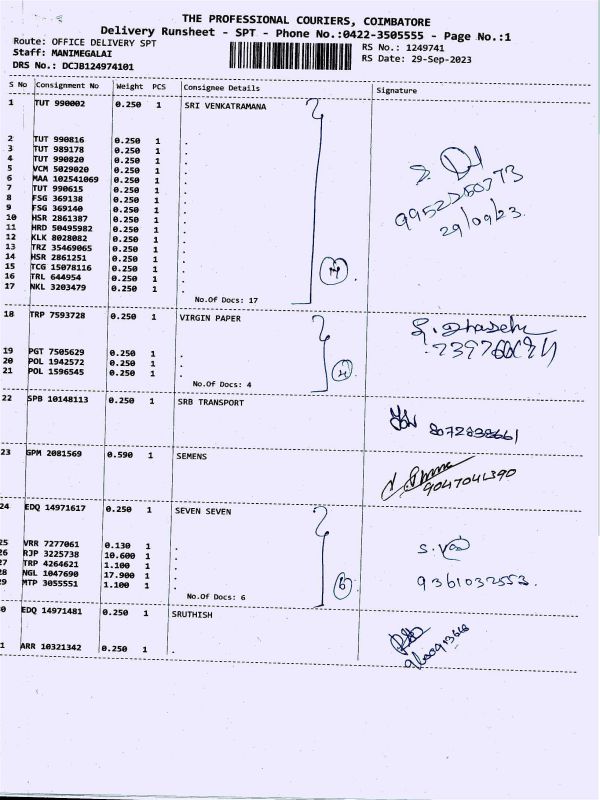 THE PROFESSIONAL COURIERS, COIMBATORE
Delivery Runsheet - SPT - Phone No.:0422-3505555 - Page No.:1
Route: OFFICE DELIVERY SPT
RS No.: 1249741
Staff: MANIMEGALAI
RS Date: 29-Sep-2023
DRS No.: DCJB124974101
S No Consignment No Weight PCS Consignee Details Signature
1 TUT 990002 0.250 1 SRI VENKATRAMANA
2 TUT 990816 0.250 1 .
3 TUT 989178 0.250 1 .
4 TUT 990820 0.250 1 .
5 VCM 5029020 0.250 1 .
6 MAA 102541069 0.250 1 .
7 TUT 990615 0.250 1 .
8 FSG 369138 0.250 1 .
9 FSG 369140 0.250 1 .
10 HSR 2861387 0.250 1 .
11 HRD 50495982 0.250 1 .
12 KLK 8028082 0.250 1 .
13 TRZ 35469065 0.250 1 .
14 HSR 2861251 0.250 1 .
15 TCG 15078116 0.250 1 .
16 TRL 644954 0.250 1 .
17 NKL 3203479 0.250 1 .
29/09/23
No.Of Docs: 17
18 TRP 7593728 0.250 1 VIRGIN PAPER
19 PGT 7505629 0.250 1 .
20 POL 1942572 0.250 1 .
21 POL 1596545 0.250 1 .
4
No.Of Docs: 4
22 SPB 10148113 0.250 1 SRB TRANSPORT
23 GPM 2081569 0.590 1 SEMENS
9047041390
24 EDQ 14971617 0.250 1 SEVEN SEVEN
25 VRR 7277061 0.130 1 .
26 RJP 3225738 10.600 1 .
27 TRP 4264621 1.100 1 .
28 NGL 1047690 17.900 1 .
29 MTP 3055551 1.100 1 .
6
9361032553.
No.Of Docs: 6
0 EDQ 14971481 0.250 1 SRUTHISH
1 ARR 10321342 0.250 1 .